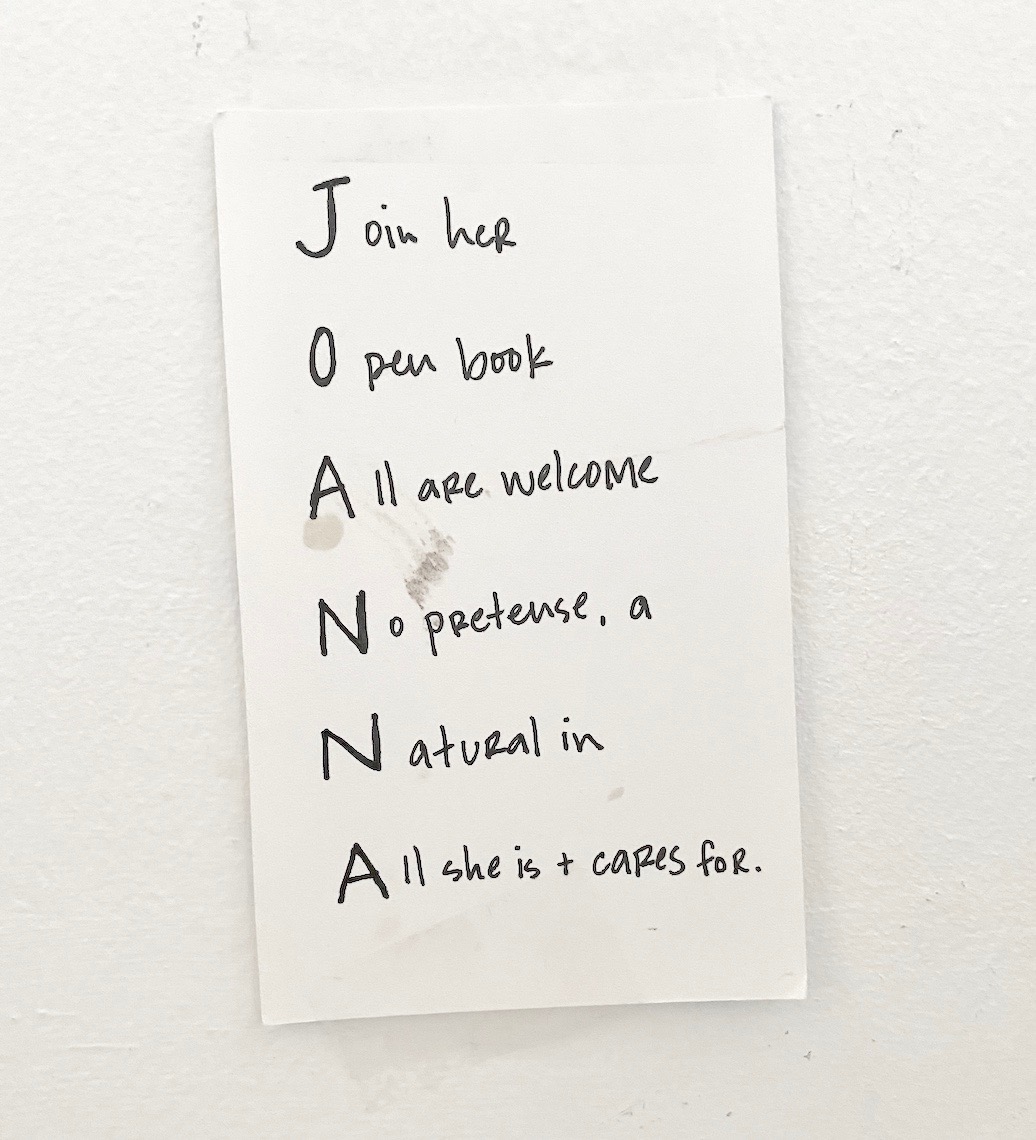 Join her
Open book
All are welcome
No pretense, a
Natural in
All she is + cares for.